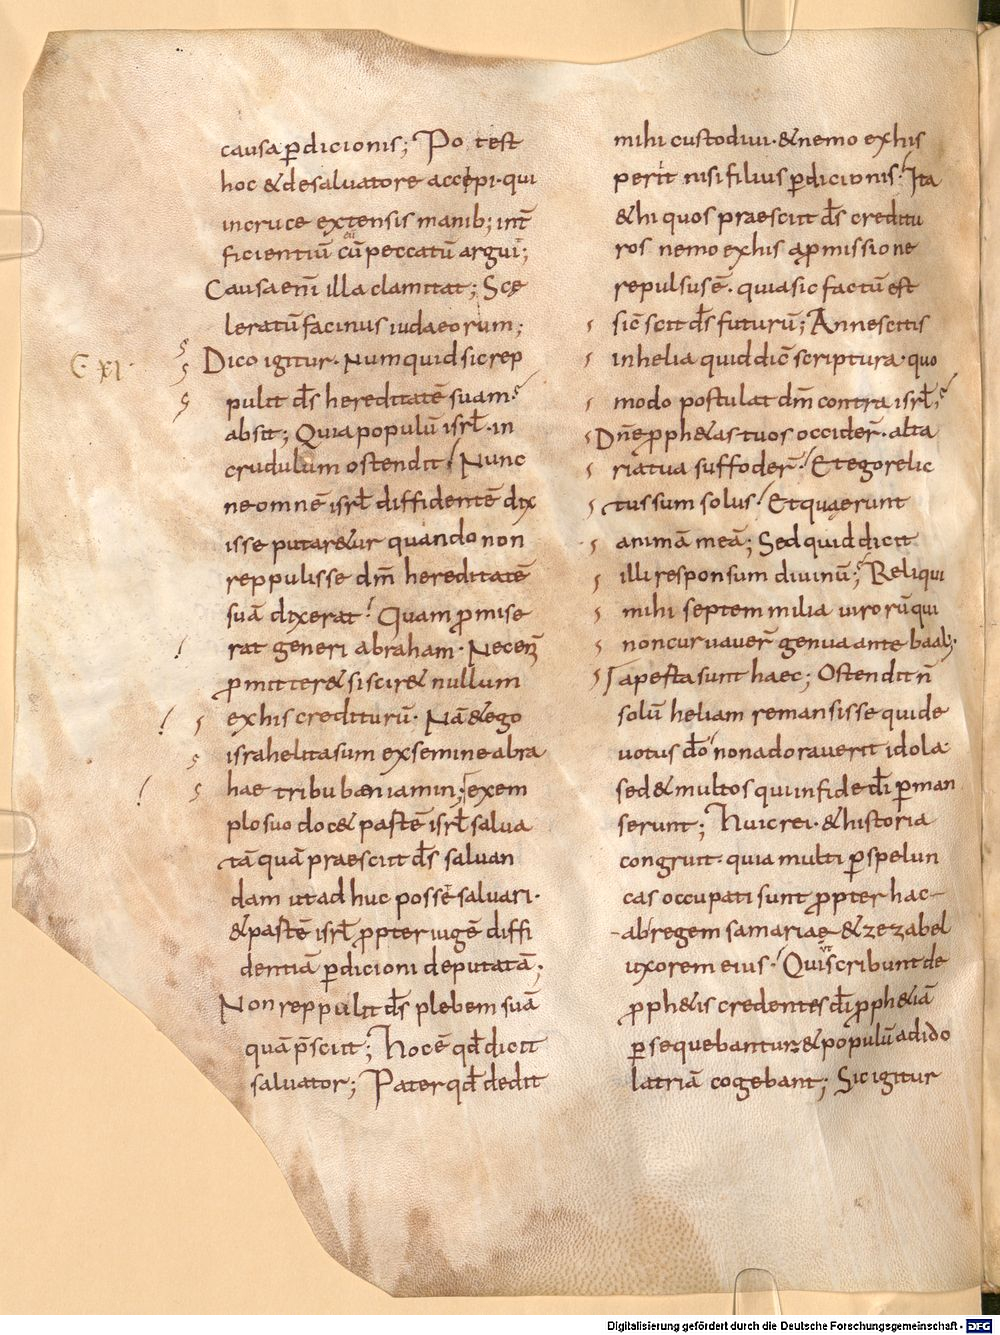 causa ꝑdicionis; Po test
hoc & desaluatore accipi· qui
incruce extensis manib; int̄
ficientiū cū peccatū argui;
Causa enī illa clamitat; Scę
leratū facinus iudaeorum;
C XI·
Dico igitur· Numquid sic rep
pulit d̄s hereditatē suam;
absit; Quia populū isrł· in
crudulum ostendit; Nunc
ne omnē isrł diffidentē dix
isse putar&ur quando non
reppulisse dm̄ hereditatē
suā dixerat; Quam ꝓmise
rat generi abraham· Nec enī
ꝓmitter& si scir& nullum
ex his crediturū· Nā & ego
israhelita sum ex semine abra
hae tribu baeniamin; exem
plo suo doc& partē isrł salua
tā quā praesciit d̄s saluan
dam ut ad huc posse saluari·
& partē isrł ꝓpter iugē diffi
dentiā ꝑdicioni deputatā;
Non reppulit d̄s plebem suā
quā p̄sciit; Hoc ē qd̄ dicit
saluator; Pater qd̄ dedit
mihi custodiui· & nemo ex his
periit nisi filius ꝑdicionis; Ita
& hi quos praesciit d̄s creditu
ros nemo ex his a ꝓmissione
repulsus ē· quia sic factū est
sic̄ sciit d̄s futurū; An nescitis
in helia quid dic̄ scriptura· quo
modo postulat dm̄ contra isrł;
Dn̄e ꝓph&as tuos occider̄· alta
ria tua suffoder̄· Et ego relic
tus sum solus; Et quaerunt
animā meā; Sed quid dicit
illi responsum diuinū; Reliqui
mihi septem milia uirorū qui
non curuauer̄ genua ante baal;
Iaperta sunt haec; Ostendit n̄
solū heliam remansisse qui de
uotus dō non adorauerit idola·
sed & multos qui in fide dī ꝑman
serunt; Huic rei· & historia
congruit· quia multi ꝑ spelun
cas occupati sunt ꝓpter hac
ab regem samariae & zezabel
uxorem eius· Qui scribunt de
ꝓph&is credentes dī ꝓph&iā
ꝑsequebantur & populū ad ido
latriā cogebant; Sic igitur
Digitalisierung gefördert durch die Deutsche Forschungsgemeinschaft - DFG